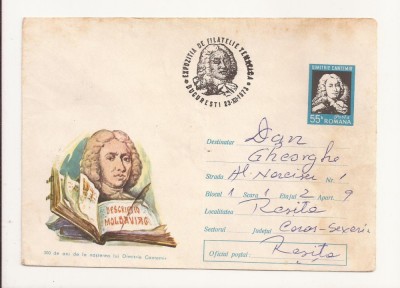 EXPOZITIA DE FILATELIE TEMATICA
BUCURESTI 23-XI-1973
DIMITRIE CANTEMIR
55B POSTA
ROMANA
DESCRIPTIO
MOLDAVIAE
300 de ani de la nașterea lui Dimitrie Cantemir
Destinatar Dan
Gheorghe
Strada Al. Narcisei Nr. 1
Blocul 1 Scara 1 Etajul 2 Apart. 9
Localitatea Reșița
Sectorul Județul Caraș-Severin
Oficiul poștal Reșița